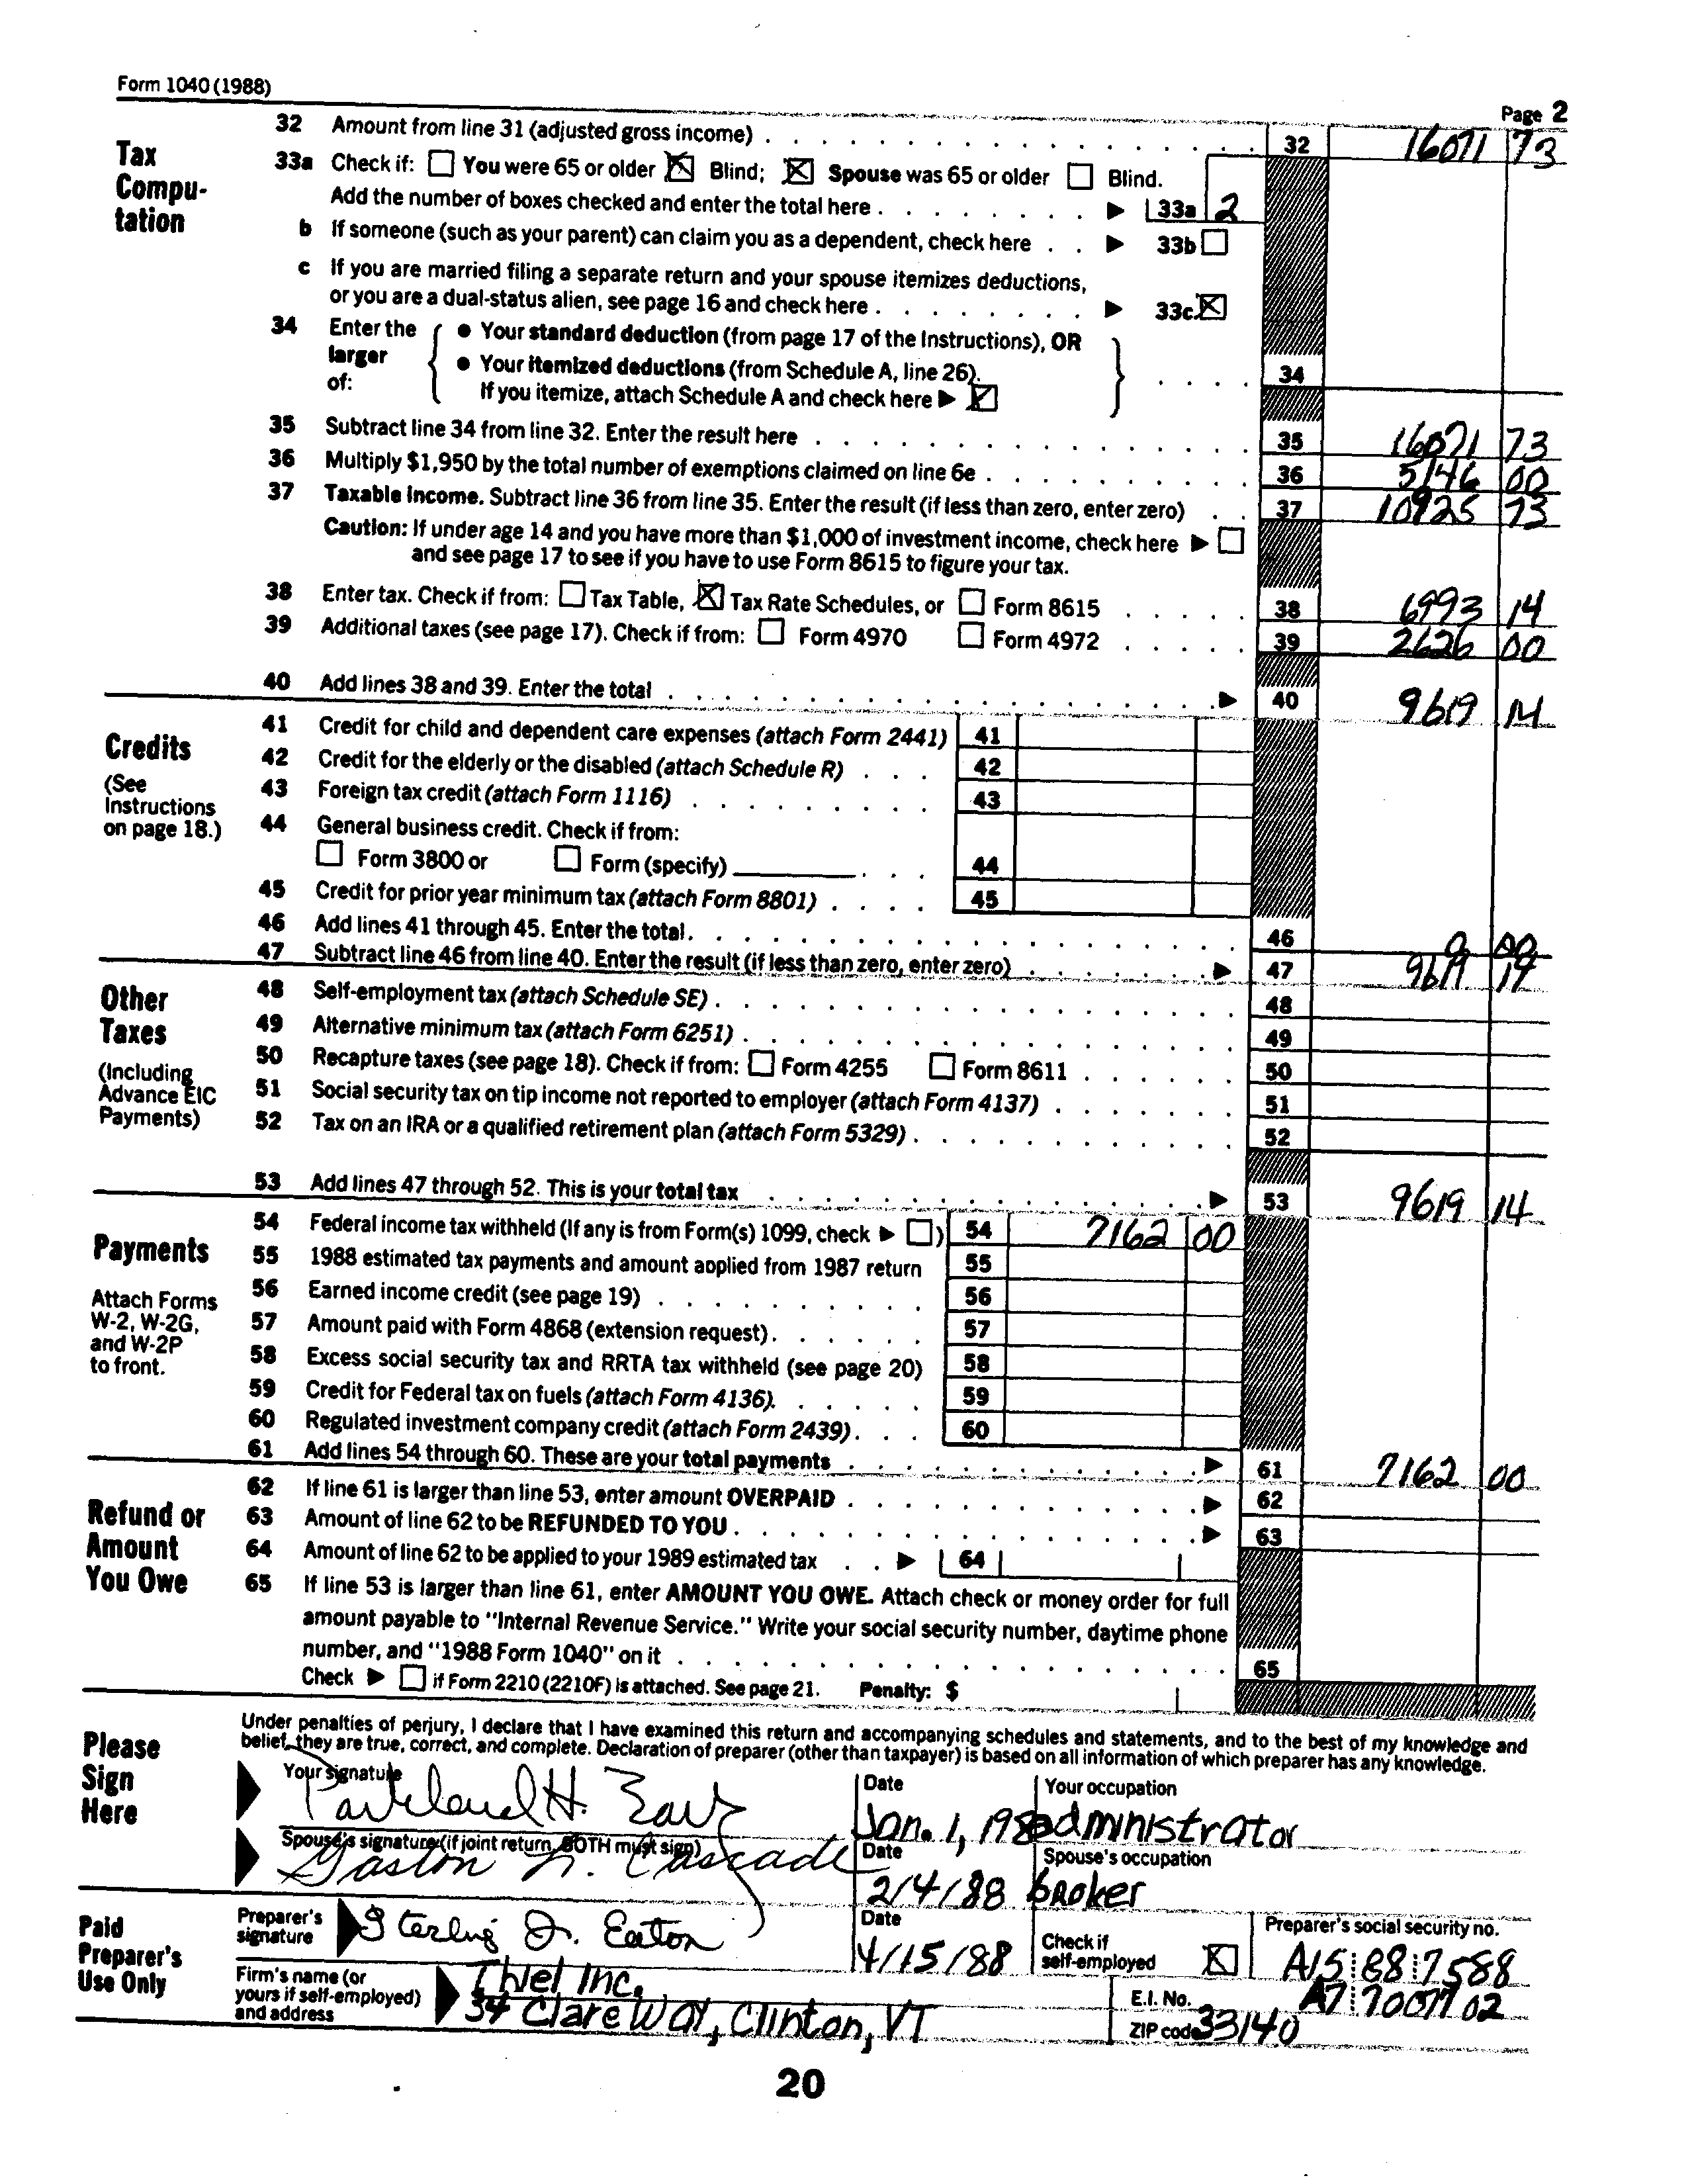 Form 1040 (1988)
Page 2
Tax Compu-
tation
32 Amount from line 31 (adjusted gross income) 32 16071 73
33a Check if: You were 65 or older Blind; Spouse was 65 or older Blind.
Add the number of boxes checked and enter the total here 33a 2
b If someone (such as your parent) can claim you as a dependent, check here 33b
c If you are married filing a separate return and your spouse itemizes deductions,
or you are a dual-status alien, see page 16 and check here 33c
34 Enter the larger of:
• Your standard deduction (from page 17 of the Instructions), OR
• Your itemized deductions (from Schedule A, line 26).
If you itemize, attach Schedule A and check here
34
35 Subtract line 34 from line 32. Enter the result here 35 16071 73
36 Multiply $1,950 by the total number of exemptions claimed on line 6e 36 5146 00
37 Taxable income. Subtract line 36 from line 35. Enter the result (if less than zero, enter zero) 37 10925 73
Caution: If under age 14 and you have more than $1,000 of investment income, check here
and see page 17 to see if you have to use Form 8615 to figure your tax.
38 Enter tax. Check if from: Tax Table, Tax Rate Schedules, or Form 8615 38 6993 14
39 Additional taxes (see page 17). Check if from: Form 4970 Form 4972 39 2626 00
40 Add lines 38 and 39. Enter the total 40 9619 14
Credits
(See
Instructions
on page 18.)
41 Credit for child and dependent care expenses (attach Form 2441) 41
42 Credit for the elderly or the disabled (attach Schedule R) 42
43 Foreign tax credit (attach Form 1116) 43
44 General business credit. Check if from:
Form 3800 or Form (specify) 44
45 Credit for prior year minimum tax (attach Form 8801) 45
46 Add lines 41 through 45. Enter the total. 46 0 00
47 Subtract line 46 from line 40. Enter the result (if less than zero, enter zero) 47 9619 14
Other
Taxes
(Including
Advance EIC
Payments)
48 Self-employment tax (attach Schedule SE) 48
49 Alternative minimum tax (attach Form 6251) 49
50 Recapture taxes (see page 18). Check if from: Form 4255 Form 8611 50
51 Social security tax on tip income not reported to employer (attach Form 4137) 51
52 Tax on an IRA or a qualified retirement plan (attach Form 5329) 52
53 Add lines 47 through 52. This is your total tax 53 9619 14
Payments
Attach Forms
W-2, W-2G,
and W-2P
to front.
54 Federal income tax withheld (If any is from Form(s) 1099, check ) 54 7162 00
55 1988 estimated tax payments and amount applied from 1987 return 55
56 Earned income credit (see page 19) 56
57 Amount paid with Form 4868 (extension request) 57
58 Excess social security tax and RRTA tax withheld (see page 20) 58
59 Credit for Federal tax on fuels (attach Form 4136) 59
60 Regulated investment company credit (attach Form 2439) 60
61 Add lines 54 through 60. These are your total payments 61 7162 00
Refund or
Amount
You Owe
62 If line 61 is larger than line 53, enter amount OVERPAID 62
63 Amount of line 62 to be REFUNDED TO YOU 63
64 Amount of line 62 to be applied to your 1989 estimated tax 64
65 If line 53 is larger than line 61, enter AMOUNT YOU OWE. Attach check or money order for full
amount payable to "Internal Revenue Service." Write your social security number, daytime phone
number, and "1988 Form 1040" on it 65
Check if Form 2210 (2210F) is attached. See page 21. Penalty: $
Please
Sign
Here
Under penalties of perjury, I declare that I have examined this return and accompanying schedules and statements, and to the best of my knowledge and
belief, they are true, correct, and complete. Declaration of preparer (other than taxpayer) is based on all information of which preparer has any knowledge.
Your signature Date Your occupation
H. Jan. 1, administrator
Spouse's signature (if joint return, BOTH must sign) Date Spouse's occupation
Gaston N. Cascade 2/4/88 broker
Paid
Preparer's
Use Only
Preparer's signature Sterling J. Eaton Date 4/15/88 Check if self-employed Preparer's social security no. A15 88 7588
Firm's name (or
yours if self-employed)
and address
Thiel Inc.
34 Clare Way, Clinton, VT
E.I. No.
ZIP code 33140
20